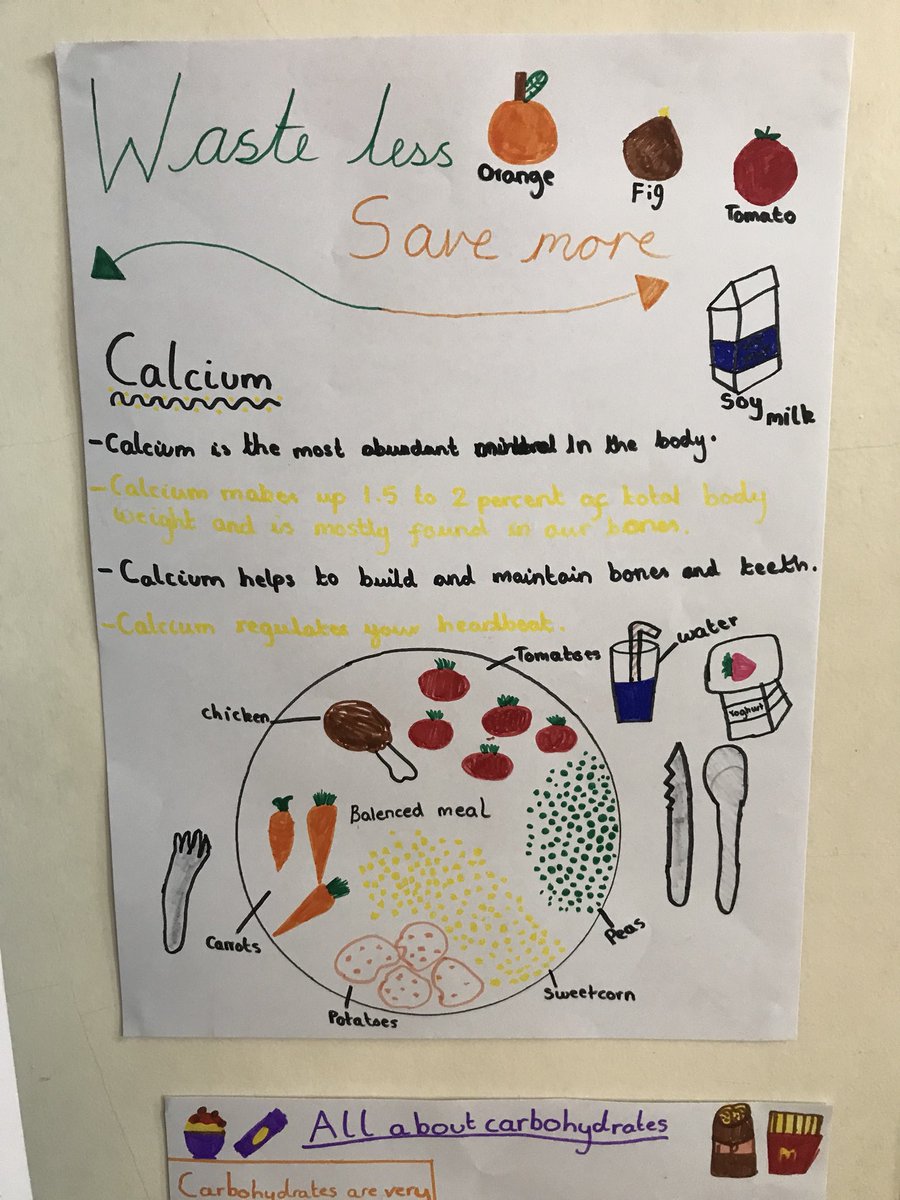 Waste less
Orange
Fig
Tomato
Save more
Soy
milk
Calcium
-Calcium is the most abundant mineral In the body.
-Calcium makes up 1.5 to 2 percent of total body
weight and is mostly found in our bones.
-Calcium helps to build and maintain bones and teeth.
-Calcium regulates your heartbeat.
water
Tomatoes
Yoghurt
chicken
Balenced meal
Carrots
Peas
Sweetcorn
Potatoes
All about carbohydrates
M
Carbohydrates are very